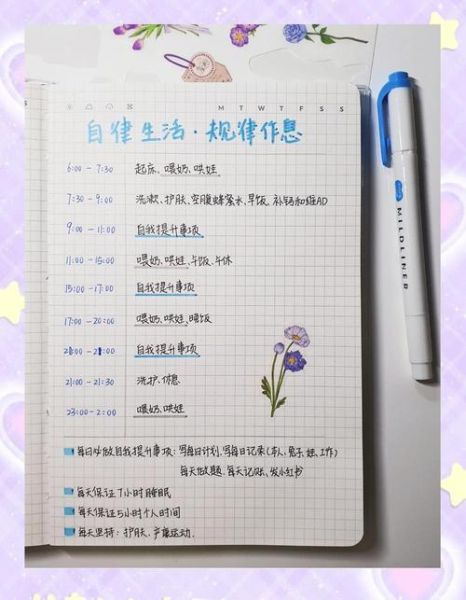 M T W T F S S
自律生活·规律作息
6:00 - 7:30 起床、喂奶、哄娃
7:30 - 9:00 洗漱、护肤、空腹蜂蜜水、早饭、补钙和维AD
9:00 - 11:00 自我提升事项
11:00 - 15:00 喂奶、哄娃、午饭、午休
15:00 - 17:00 自我提升事项
17:00 - 20:00 喂奶、哄娃、晚饭
20:00 - 21:00 自我提升事项
21:00 - 21:30 洗护、休息
23:00 - 2:00 喂奶、哄娃
每日必做自我提升事项：写每日计划、写每日记录(本人、兔子、娃、工作)
每天做题、每天记账、发小红书
每天保证7小时睡眠
每天保证5小时个人时间
每天坚持：护肤、产康运动.
MILDLINER